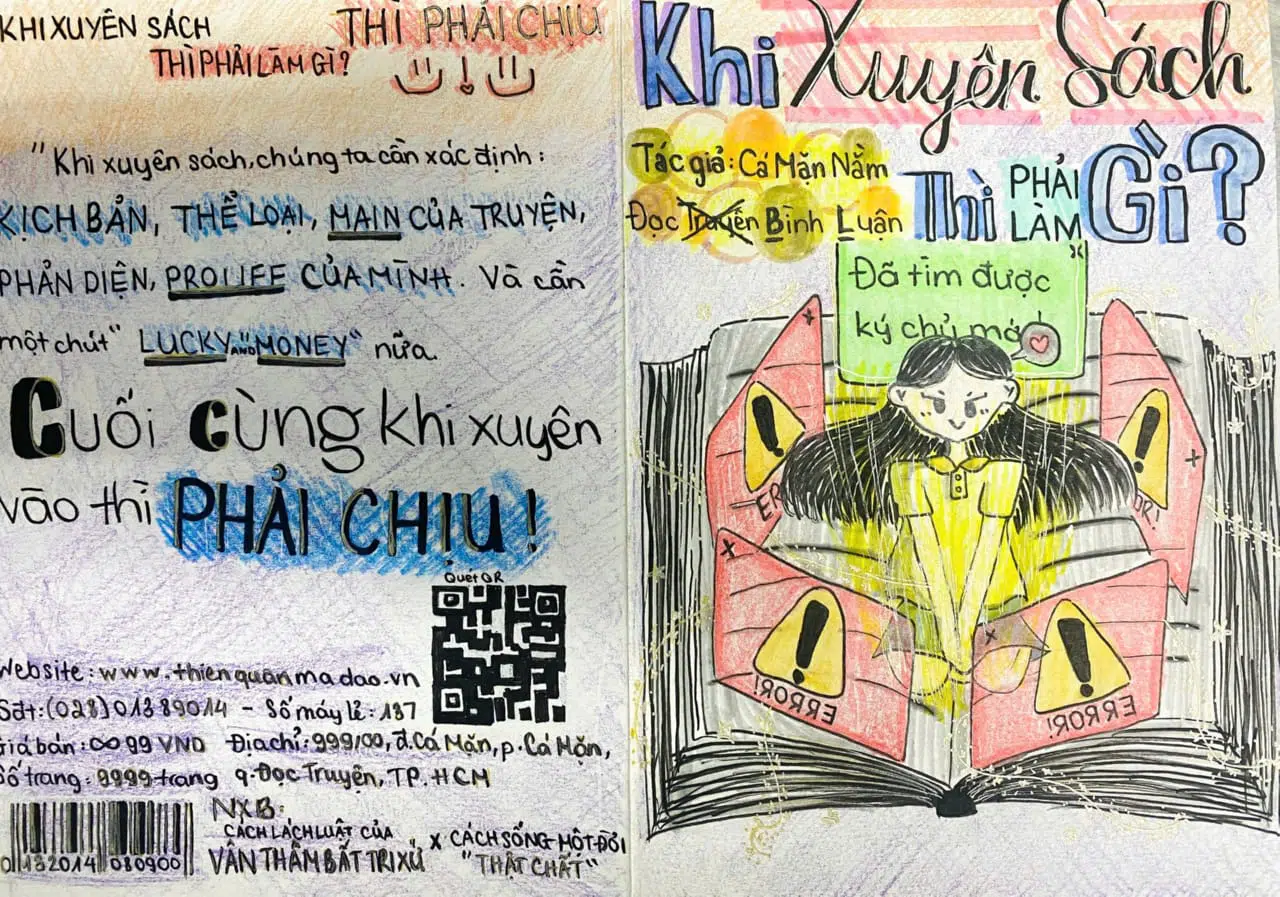 KHI XUYÊN SÁCH
THÌ PHẢI LÀM GÌ?
THÌ PHẢI CHỊU
"Khi xuyên sách, chúng ta cần xác định:
KỊCH BẢN, THỂ LOẠI, MAIN CỦA TRUYỆN,
PHẢN DIỆN, PROLIFE CỦA MÌNH. Và cần
một chút "LUCKY AND MONEY" nữa.
Cuối cùng khi xuyên
vào thì PHẢI CHỊU!
Quét QR
Website: www.thienquanmadao.vn
Sđt: (028) 01389014 - Số máy lẻ: 137
Giá bán: ∞99 VND Địa chỉ: 999/00, đ. Cá Mặn, p. Cá Mặn,
Số trang: 9999 trang q. Đọc Truyện, TP. HCM
NXB:
CÁCH LÁCH LUẬT CỦA
VÂN THÂM BẤT TRI XỨ
X CÁCH SỐNG MỘT ĐỜI
"THẬT CHẤT"
0132014 080900
Khi Xuyên Sách
Thì PHẢI LÀM Gì?
Tác giả: Cá Mặn Nằm
Đọc Truyễn Bình Luận
Đã tìm được
ký chủ
ER
OR!
ERROR!
ERROR!